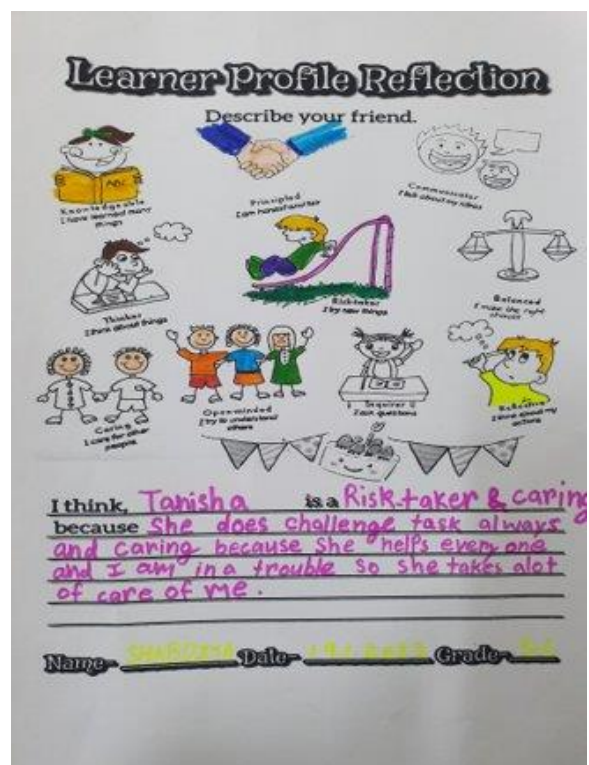 Learner Profile Reflection
Describe your friend.
ABC
Knowledgeable
I have learned many
things
Principled
I am honest and fair
Communicator
I talk about my ideas
Thinker
I think about things
Risk-taker
I try new things
Balanced
I make the right
choices
Caring
I care for other
people
Open-minded
I try to understand
others
Inquirer
I ask questions
Reflective
I think about my
actions
I think, Tanisha is a Risk-taker & caring
because She does challenge task always
and caring because She helps every one
and I am in a trouble so she takes alot
of care of me.
Name- Date- Grade-